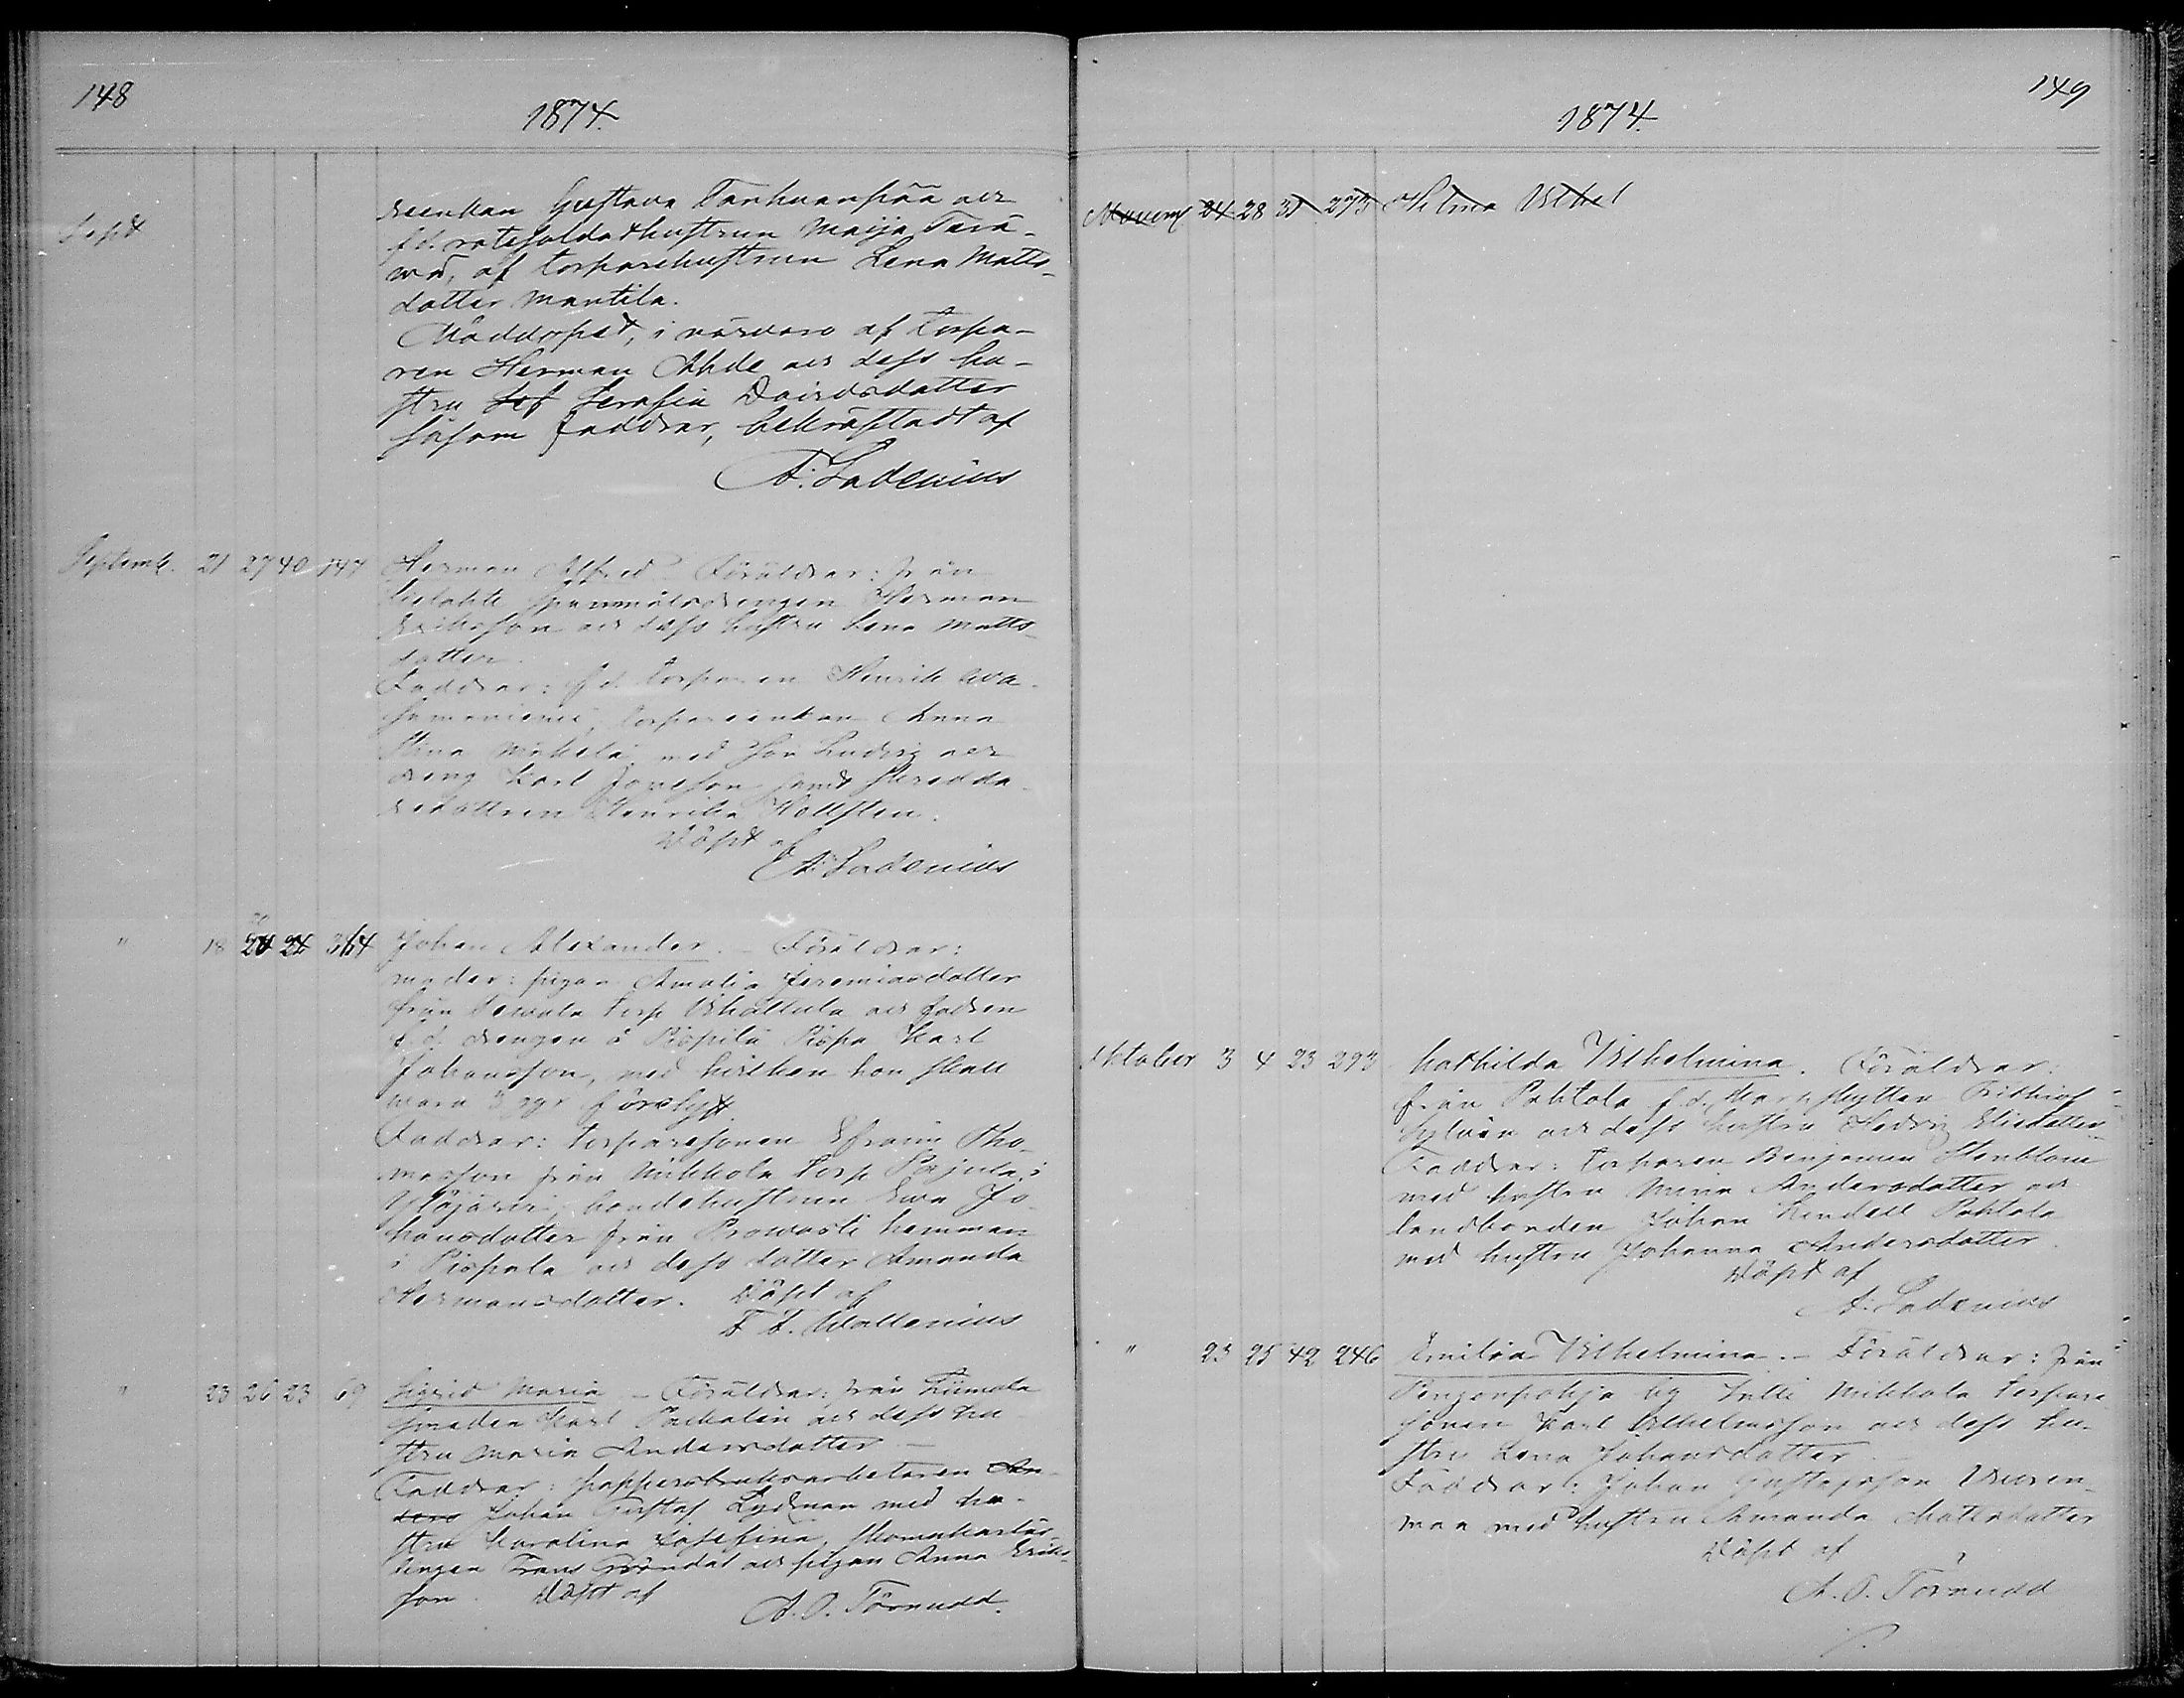 148
1874.
Sept
enkan Gustava Tanhuanpää och
f. d. rotesoldathustrun Maija Terä-
wä, af torparehustrun Lena Matts-
dotter Mantila.
Nöddopet, i närvaro af torpa-
ren Herman Ahde och dess hu-
stru Sef Serafia Davidsdotter
såsom faddrar, bekräftadt af
A. Ladenius
Septemb. 21 27 40 147 Herman Alfred – Föräldrar: från
spannmålsdrengen Herman
Eriksson och dess hustru Lena Matts-
dotter.
Faddrar: f. d. torparen Henrik Ava-
, torpareenkan Anna
Stina Mikola med son Ludvig och
dreng Karl Jonsson samt skredda-
redottren Henrika Hellsten.
Döpt af
A. Ladenius
" 18 20 24 364 Johan Alexander. – Föräldrar:
moder: pigan Amalia Jeremiasdotter
från torp och fadren
f. d. drengen å Pispala Karl
Johansson, med hvilken hon skall
vara 3 ggr förelyst.
Faddrar: torparesonen Efraim Tho-
masson från Mikkola torp Pajula i
Ylöjärvi, bondehustrun Eva Jo-
hansdotter från Prowasti hemman
i Pispala och dess dotter Amanda
Hermansdotter. Döpt af
F. F. Wallenius
" 23 26 23 69 Sigrid Maria – Föräldrar: från
smeden Karl och dess hu-
stru Maria Andersdotter –
Faddrar: pappersbruksarbetaren An-
ders Johan Gustaf Lydman med hu-
stru Karolina Josefina, skomakarlär-
lingen Frans Gröndal och pigan Anna Eriks-
son. Döpt af
A. O. Törnudd.
149
1874.
Novemb 24 28 31 273 Hilma Vilhel
Oktober 3 4 23 293 Mathilda Vilhelmina. Föräldrar:
från Pahtola f. d. Frithiof
och dess hustru Hedvig Eliedotter
Faddrar: torparen Benjamin Stenblom
med hustru Mina Andersdotter och
landbonden Johan Lindell Pahtola
med hustru Johanna Andersdotter.
Döpt af
A. Ladenius
" 23 25 42 246 Emilia Vilhelmina. – Föräldrar: från
by Mikkola torpare-
sonen Karl Vilhelmsson och dess hu-
stru Lena Johansdotter. –
Faddrar: Johan Gustafsson Vuoren-
maa med hustru Amanda Mattsdotter
Döpt af
A. O. Törnudd